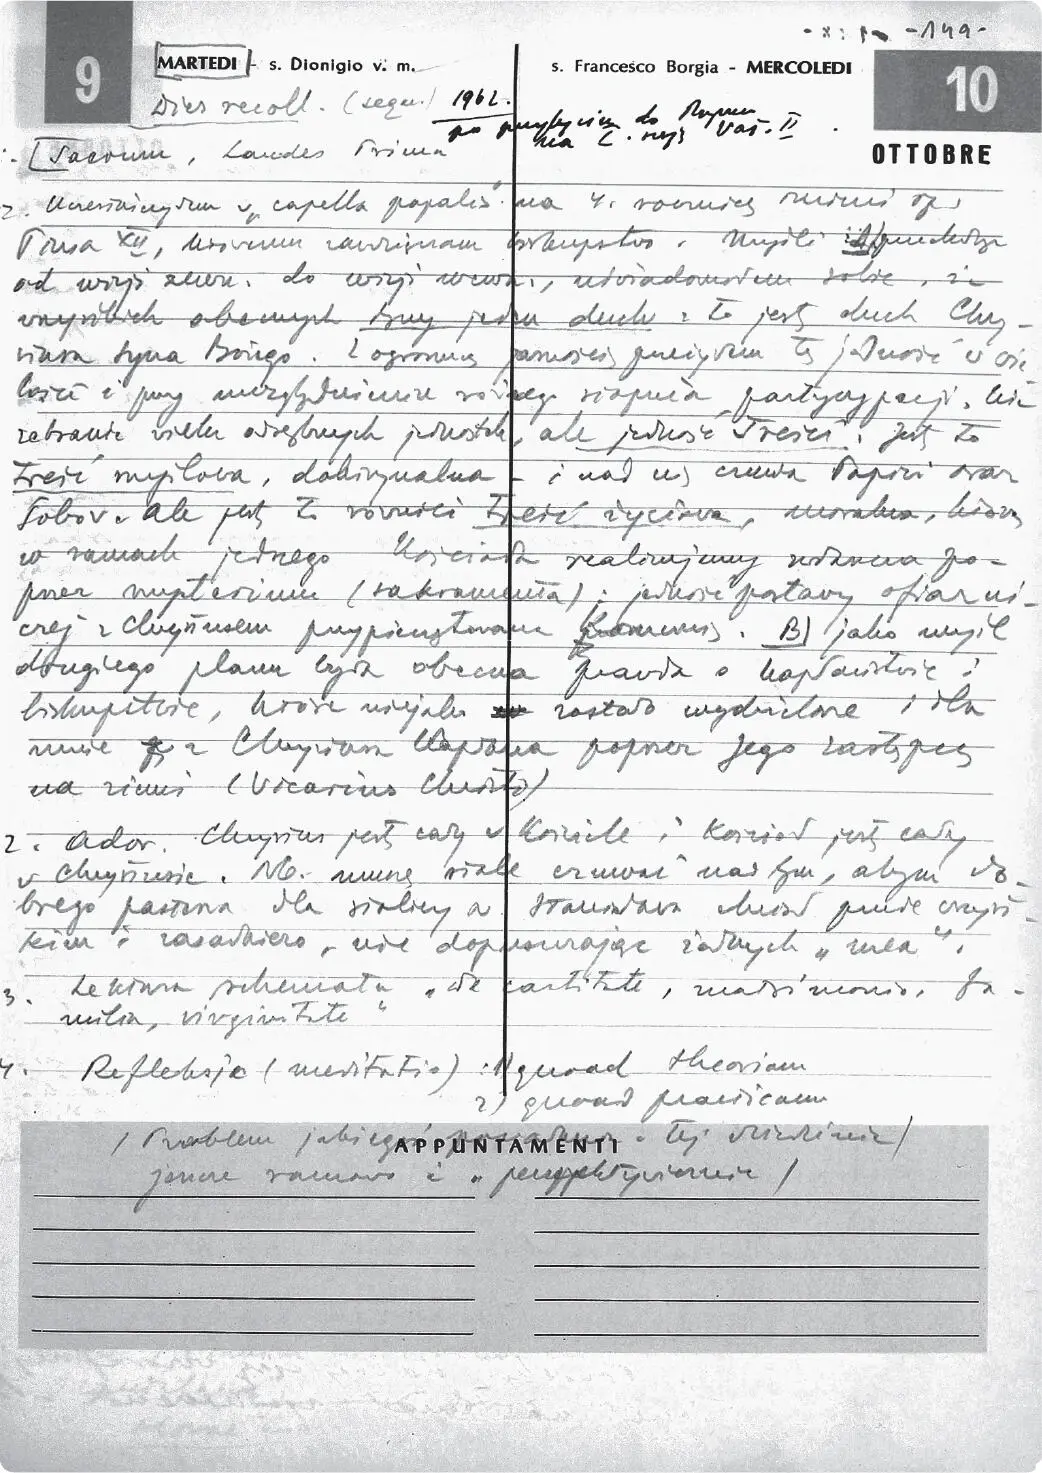 -149-
9 MARTEDI - s. Dionigio v. m.
s. Francesco Borgia - MERCOLEDI 10
OTTOBRE
Dies recoll. (sequ.) 1962.
po przybyciu do Rzymu
na I. sesję Vat. II
[Sacrum, Laudes Prima
Uczestniczyłem w „capella papalis” na 4. rocznicę śmierci
Piusa XII, któremu zawdzięczam biskupstwo. Myśli
od wizji zewn. do wizji wewn., uświadomiłem sobie, że
wszystkich obecnych łączy jeden duch: to jest duch Chry-
stusa Syna Bożego. Z ogromną jasnością przeżyłem tę jedność w wie-
lości i przy uwzględnieniu różnego stopnia partycypacji. Nie
zebranie wielu odrębnych jednostek, ale jedność treści. Jest to
treść myślowa, doktrynalna - i nad nią czuwa Papież oraz
Sobór. Ale jest to również treść życiowa, moralna, którą
w ramach jednego Kościoła realizujemy
przez mysterium (sakramenta): jedność postawy ofiarni-
czej z Chrystusem przypieczętowana Komunią. B) jako myśl
drugiego planu była obecna prawda o kapłaństwie i
biskupstwie, które niejako zostało wydzielone i dla
mnie z Chrystusa Kapłana poprzez Jego zastępcę
na ziemi (Vicarius Christi)
2. Ador. Chrystus jest cały w Kościele i Kościół jest cały
w Chrystusie. NB. muszę stale czuwać nad tym, abym do-
brego pasterza dla stolicy św. Stanisława chciał przede wszyst-
kim i zasadniczo, nie dopuszczając żadnych „mea”.
3. Lektura schematu „de castitate, matrimonio, fa-
milia, virginitate”
4. Refleksja (meditatio): 1) quoad theoriam
2) quoad practicam
/ Problem jakiegoś tej dziedzinie/
APPUNTAMENTI
jasne i „perspektywicznie /